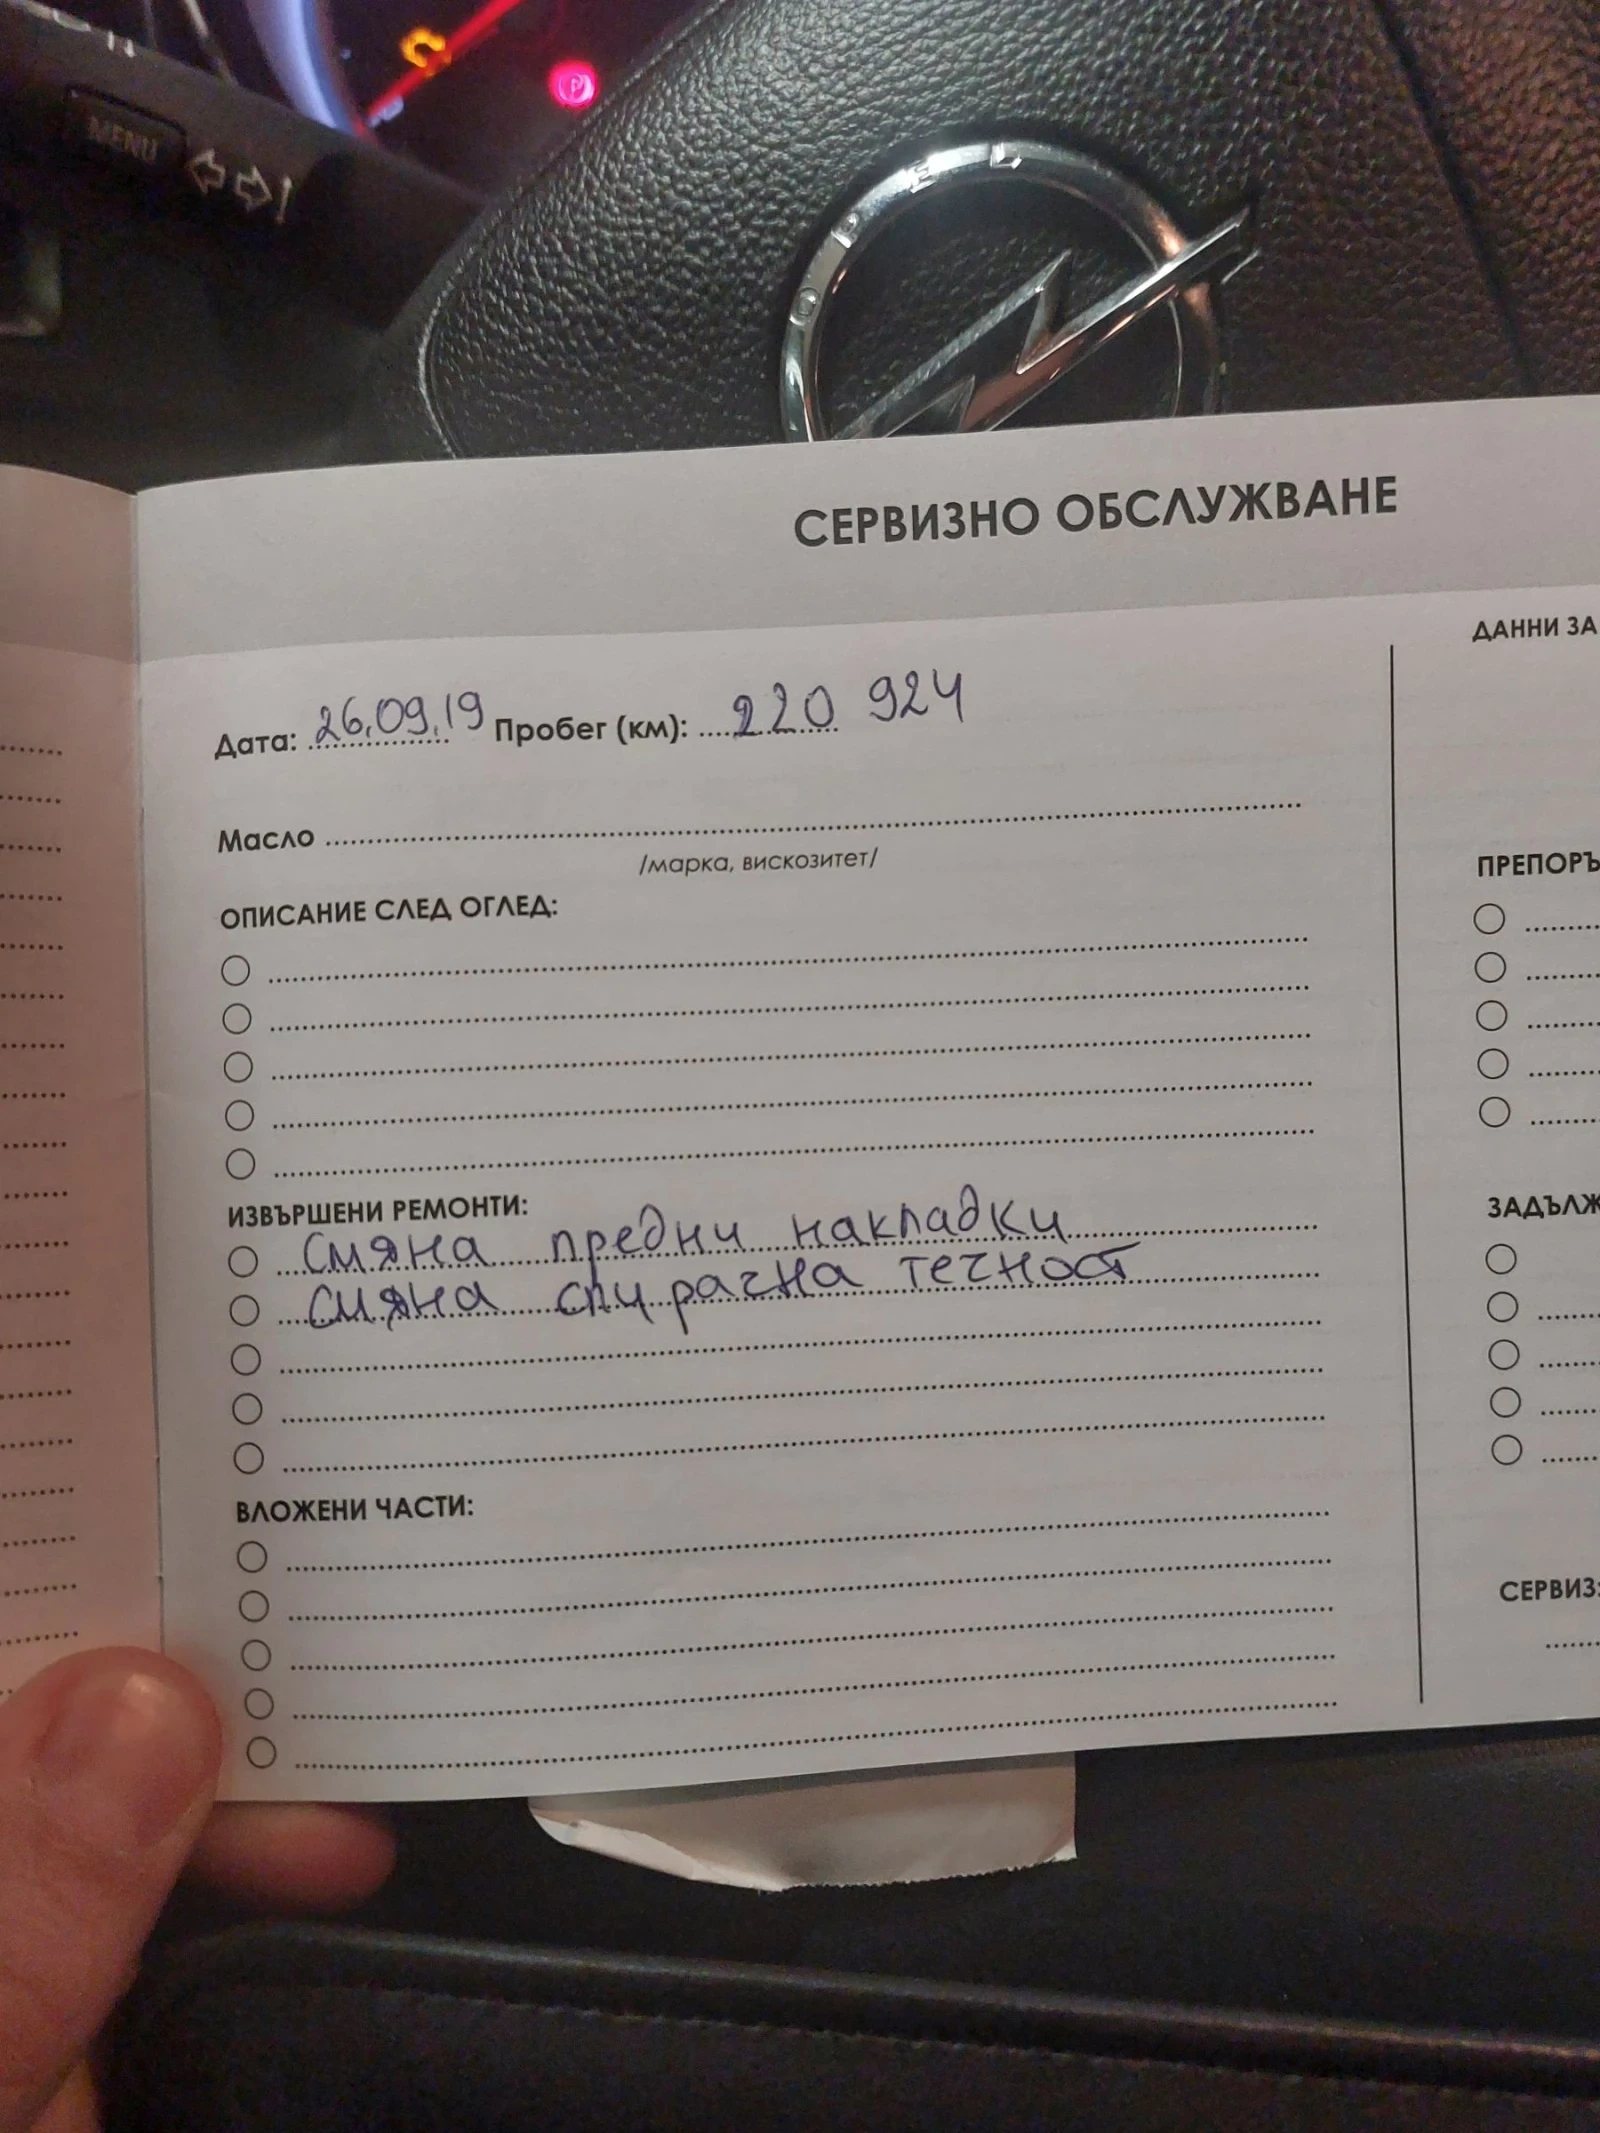 MENU
OPEL
СЕРВИЗНО ОБСЛУЖВАНЕ
Дата: 26.09.19 Пробег (км): 220 924
Масло
/марка, вискозитет/
ОПИСАНИЕ СЛЕД ОГЛЕД:
ИЗВЪРШЕНИ РЕМОНТИ:
Смяна предни накладки
Смяна спирачна течност
ВЛОЖЕНИ ЧАСТИ:
ДАННИ ЗА
ПРЕПОРЪ
ЗАДЪЛЖ
СЕРВИЗ: